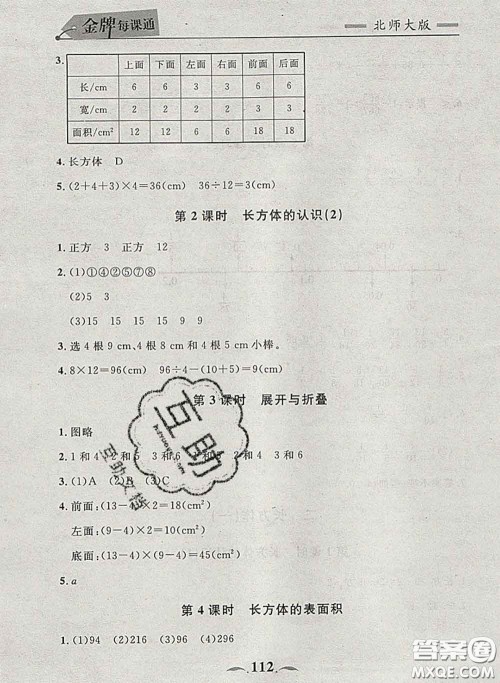 金牌每课通
北师大版
3.
上面 下面 左面 右面 前面 后面
长/cm 6 6 3 3 6 6
宽/cm 2 2 2 2 3 3
面积/cm² 12 12 6 6 18 18
4. 长方体 D
5. (2+4+3)×4=36(cm) 36÷12=3(cm)
第 2 课时 长方体的认识(2)
1. 正方 3 正方 12
2. (1)①④②⑤⑦⑧
(2)5 3
(3)15 15 15 15 9 9
3. 选 4 根 9 cm、4 根 8 cm 和 4 根 5 cm 小棒。
4. 8×12=96(cm) 96÷4-(10+5)=9(cm)
第 3 课时 展开与折叠
1. 图略
2. 1 和 4 2 和 5 3 和 6 1 和 4 3 和 6
3. (1)A (2)B (3)C
4. 前面:(13-4)×2=18(cm²)
左面:(9-4)×2=10(cm²)
下面:(13-4)×(9-4)=45(cm²)
5. a
第 4 课时 长方体的表面积
1. (1)94 (2)216 (3)96 (4)296
112
互助
互助文档
答案圈
MXQE.COM